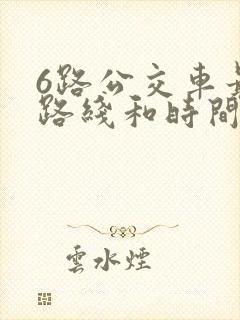 6路公交車
路綫和時間
雲水煙